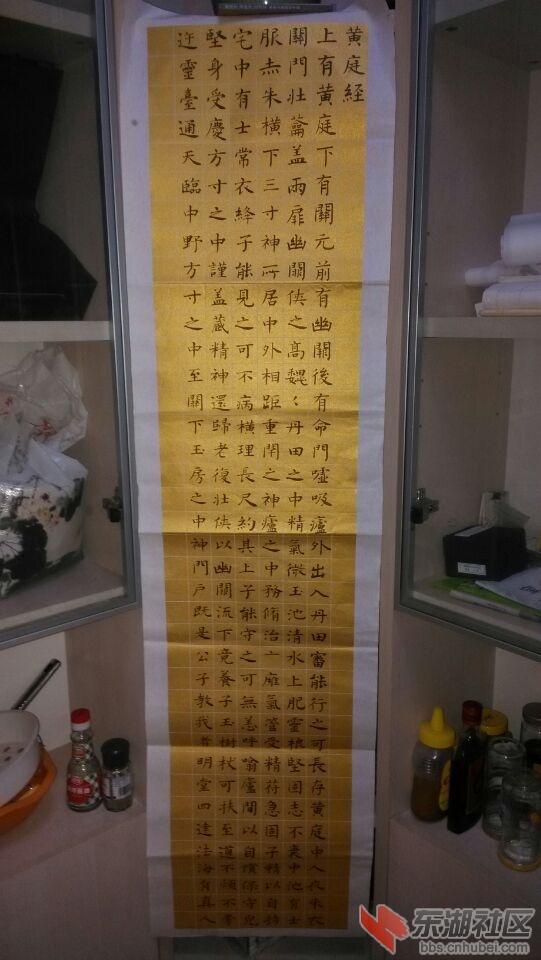 黄庭経
上有黄庭下有關元前有幽關後有命門噓吸廬外出入丹田審能行之可長存黄庭中人衣朱衣
關門壮蘥盖兩扉幽關俠之高魏〻丹田之中精氣微玉池清水上肥靈根堅固志不衰中池有士
服赤朱横下三寸神所居中外相距重閇之神廬之中務脩治亠廱氣管受精符急固子精以自持
宅中有士常衣絳子能見之可不病横理長尺約其上子能守之可無恙呼噏廬間以自償保守皃
堅身受慶方寸之中謹盖藏精神還歸老復壮俠以幽關流下竟養子玉樹杖可扶至道不煩不旁
迕靈臺通天臨中野方寸之中至關下玉房之中神門户既是公子教我者明堂四達法海員真人
东湖社区
bbs.cnhubei.com